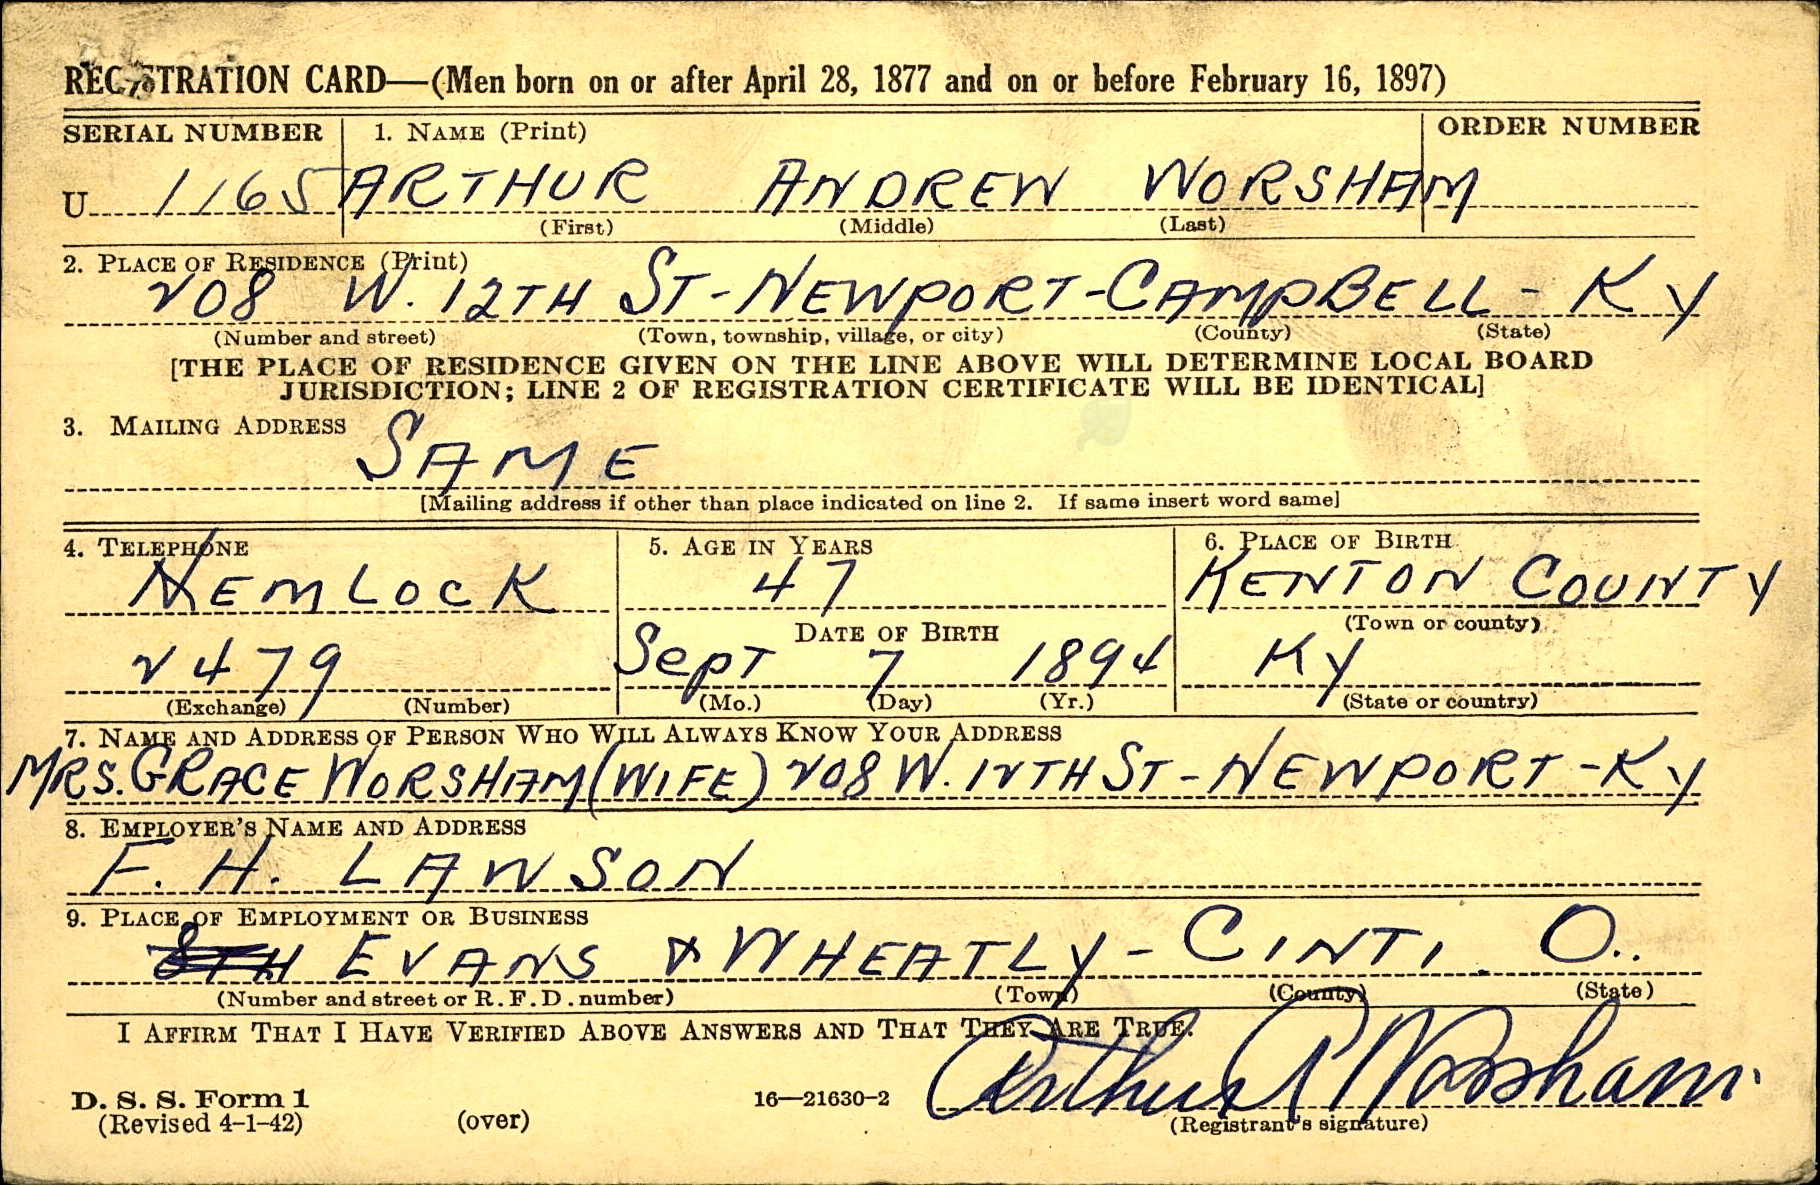 REGISTRATION CARD—(Men born on or after April 28, 1877 and on or before February 16, 1897)
SERIAL NUMBER 1. NAME (Print) ORDER NUMBER
U 1165 ARTHUR ANDREW WORSHAM
(First) (Middle) (Last)
2. PLACE OF RESIDENCE (Print)
208 W. 12TH ST - NEWPORT - CAMPBELL - KY
(Number and street) (Town, township, village, or city) (County) (State)
[THE PLACE OF RESIDENCE GIVEN ON THE LINE ABOVE WILL DETERMINE LOCAL BOARD
JURISDICTION; LINE 2 OF REGISTRATION CERTIFICATE WILL BE IDENTICAL]
3. MAILING ADDRESS
SAME
[Mailing address if other than place indicated on line 2. If same insert word same]
4. TELEPHONE 5. AGE IN YEARS 6. PLACE OF BIRTH
HEMLOCK 47 KENTON COUNTY
DATE OF BIRTH (Town or county)
2479 Sept 7 1894 KY
(Exchange) (Number) (Mo.) (Day) (Yr.) (State or country)
7. NAME AND ADDRESS OF PERSON WHO WILL ALWAYS KNOW YOUR ADDRESS
MRS. GRACE WORSHAM (WIFE) 208 W. 12TH ST - NEWPORT - KY
8. EMPLOYER'S NAME AND ADDRESS
F. H. LAWSON
9. PLACE OF EMPLOYMENT OR BUSINESS
8TH EVANS & WHEATLY - CINTI. O.
(Number and street or R. F. D. number) (Town) (County) (State)
I AFFIRM THAT I HAVE VERIFIED ABOVE ANSWERS AND THAT THEY ARE TRUE.
Arthur A Worsham.
D. S. S. Form 1 16—21630-2
(Revised 4-1-42) (over) (Registrant's signature)